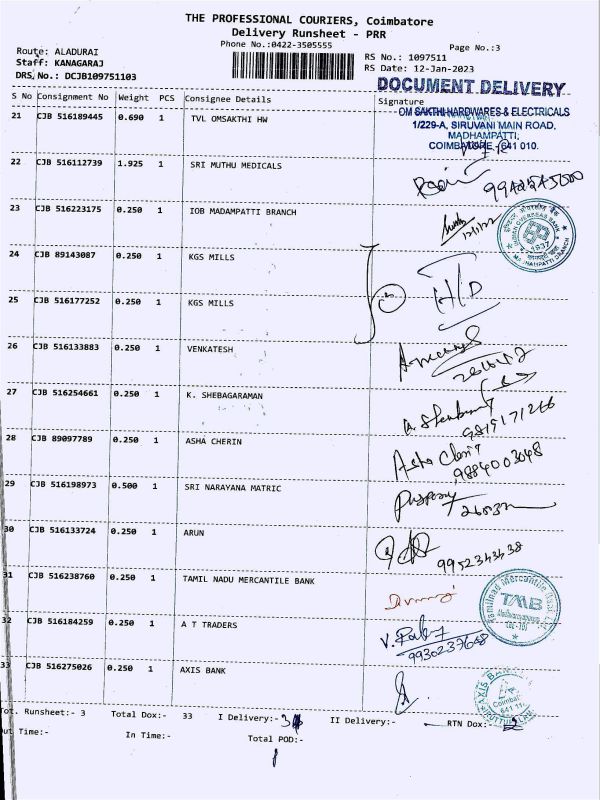 THE PROFESSIONAL COURIERS, Coimbatore
Delivery Runsheet - PRR
Phone No.:0422-3505555
Page No.:3
Route: ALADURAI
Staff: KANAGARAJ
DRS, No.: DCJB109751103
RS No.: 1097511
RS Date: 12-Jan-2023
DOCUMENT DELIVERY
S No Consignment No Weight PCS Consignee Details Signature
21 CJB 516189445 0.690 1 TVL OMSAKTHI HW
OM SAKTHI HARDWARES & ELECTRICALS
1/229-A, SIRUVANI MAIN ROAD,
MADHAMPATTI,
COIMBATORE, 641 010.
22 CJB 516112739 1.925 1 SRI MUTHU MEDICALS
23 CJB 516223175 0.250 1 IOB MADAMPATTI BRANCH
INDIAN OVERSEAS BANK
1937
24 CJB 89143087 0.250 1 KGS MILLS
H/D
25 CJB 516177252 0.250 1 KGS MILLS
26 CJB 516133883 0.250 1 VENKATESH
27 CJB 516254661 0.250 1 K. SHEBAGARAMAN
9819171266
28 CJB 89097789 0.250 1 ASHA CHERIN
9884003048
29 CJB 516198973 0.500 1 SRI NARAYANA MATRIC
30 CJB 516133724 0.250 1 ARUN
9952343438
31 CJB 516238760 0.250 1 TAMIL NADU MERCANTILE BANK
Tamilnad Mercantile Bank Ltd
TMB
32 CJB 516184259 0.250 1 A T TRADERS
33 CJB 516275026 0.250 1 AXIS BANK
AXIS BANK
Tot. Runsheet:- 3 Total Dox:- 33 I Delivery:- II Delivery:- RTN Dox:-
Out Time:- In Time:- Total POD:-